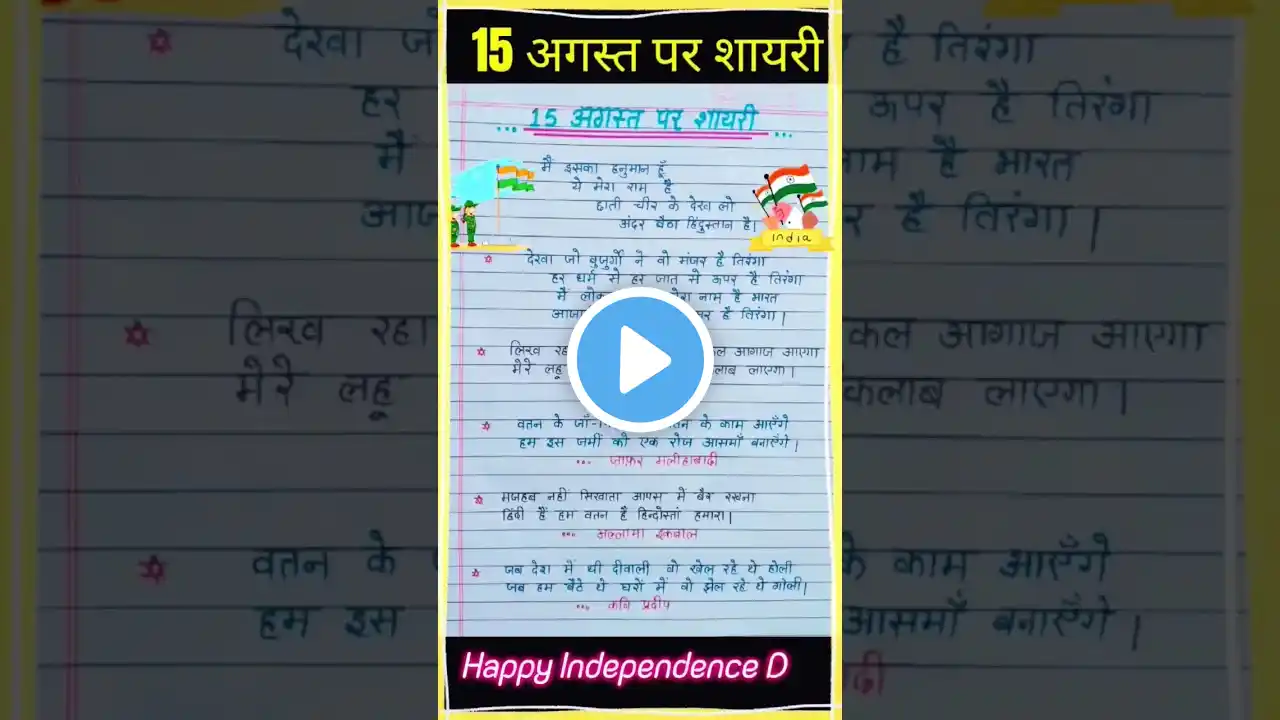 15 अगस्त पर शायरी
... 15 अगस्त पर शायरी ...
मैं इसका हनुमान हूँ
ये मेरा राम है
छाती चीर के देख लो
अंदर बैठा हिंदुस्तान है।
india
देखा जो बुजुर्गों ने वो मंजर है तिरंगा
हर धर्म से हर जात से ऊपर है तिरंगा
मैं मेरा नाम है भारत
है तिरंगा।
लिख कल आगाज आएगा
मेरे लहू लाएगा।
वतन के के काम आएँगे
हम इस जमीं को एक रोज आसमाँ बनाएँगे।
... जाफ़र मलीहाबादी
मजहब नहीं सिखाता आपस में बैर रखना
हिंदी हैं हम वतन हैं हिन्दोस्तां हमारा।
... अल्लामा इकबाल
जब देश में थी दीवाली वो खेल रहे थे होली
जब हम बैठे थे घरों में वो झेल रहे थे गोली।
... कवि प्रदीप
Happy Independence D
देखा
हर
मैं
है तिरंगा
ऊपर है तिरंगा
नाम है भारत
है तिरंगा।
लिख रहा
मेरे लहू
कल आगाज आएगा
लाएगा।
वतन के
हम इस
के काम आएँगे
आसमाँ बनाएँगे।